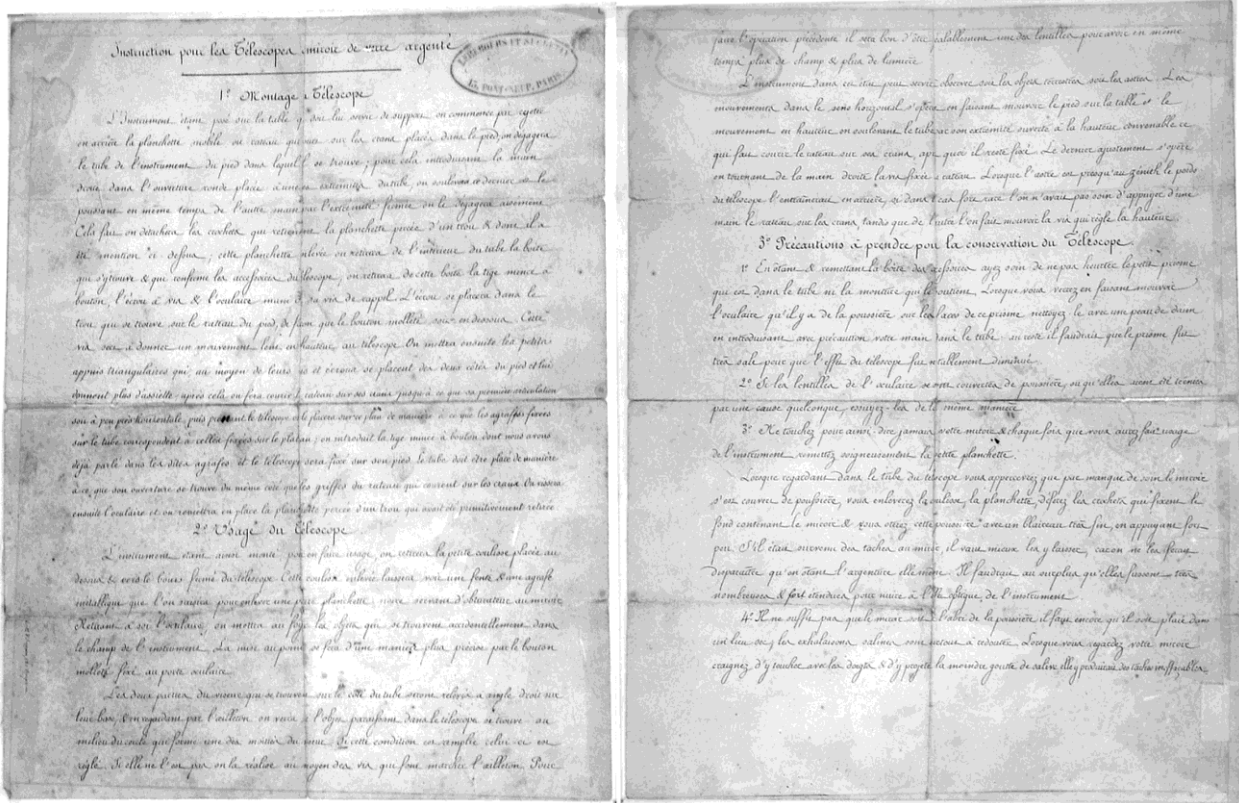 Instruction pour les Télescopes à miroir de verre argenté
1º Montage Télescope
L'Instrument étant posé sur la table qui doit lui servir de support on commence par rejeter
en arrière la planchette mobile ou rateau qui sur les crans placés dans le pied, on dégagera
le tube de l'instrument du pied dans lequel il se trouve; pour cela introduisant la main
droite dans l'ouverture ronde placée à une extrémités du tube on soulèvera ce dernier en le
poussant en même temps de l'autre main par l'extrémité fermée on le dégagera
Cela fait on détachera les crochets qui retiennent la planchette percée d'un trou & dont il a
été mention ci-dessus, cette planchette enlevée on retirera de l'intérieur du tube la boîte
qui s'y trouve & qui renferme les accessoires du télescope, on retirera de cette boîte la tige mince à
bouton, l'écrou à vis & l'oculaire muni de sa vis de rappel. L'écrou se placera dans le
trou qui se trouve sur le rateau du pied, de façon que le bouton molleté soit en dessous. Cette
vis sert à donner un mouvement lent en hauteur au télescope On mettra ensuite les petits
appuis triangulaires qui, au moyen de leurs vis et écrous se placent des deux côtés du pied et lui
donnent plus d'assiette. après cela on fera courir le rateau sur ses crans jusqu'à ce que sa
soit à peu près horizontale, puis prenant le télescope on le placera sur ce plan de manière à ce que les agrafes fixées
sur le tube correspondent à celles fixées sur le platan; on introduit la tige mince à bouton dont nous avons
déjà parlé dans les dites agrafes et le télescope sera fixé sur son pied. le tube doit être placé de manière
à ce que son ouverture se trouve du même côté que les griffes du rateau qui courent sur les crans On vissera
ensuite l'oculaire et on remettra en place la planchette percée d'un trou qui avait été primitivement retirée
2º Usage du Télescope
L'instrument étant ainsi monté, pour en faire usage, on retirera la petite coulisse placée au
dessus & vers le bout fermé du télescope Cette coulisse enlevée laissera voir une fente & une agrafe
métallique que l'on saisira pour enlever une petite planchette noire servant d'obturateur au miroir
Retirant à soi l'oculaire, on mettra au foyer les objets qui se trouvent accidentellement dans
le champ de l'instrument. La mise au point se fera d'une manière plus précise par le bouton
molleté fixé au porte oculaire
Les deux parties du viseur qui se trouvent sur le côté du tube seront relevés à angle droit sur
leur base, & en regardant par l'œilleton on verra si l'objet paraissant dans le télescope se trouve au
milieu du cercle que forme une des moitiés du viseur Si cette condition est remplie celui-ci est
réglé. Si elle ne l'est pas on la réalise au moyen des vis qui font marcher l'œilleton. Pour
faire l'opération précédente il sera bon d'ôter préalablement une des lentilles pour avoir en même
temps plus de champ & plus de lumière
L'instrument dans cet état peut servir à observer soit les objets terrestres soit les astres. Les
mouvements dans le sens horizontal s'opèrent en faisant mouvoir le pied sur la table & le
mouvement en hauteur en soulevant le tube par son extrémité ouverte à la hauteur convenable ce
qui fait courir le rateau sur ses crans, après quoi il reste fixé. Le dernier ajustement s'opère
en tournant de la main droite la vis fixée au rateau. Lorsque l'astre est presqu'au zénith le poids
du télescope l'entraînerait en arrière, si dans ce cas fort rare l'on n'avait pas soin d'appuyer d'une
main le rateau sur les crans, tandis que de l'autre l'on fait mouvoir la vis qui règle la hauteur.
3º Précautions à prendre pour la conservation du Télescope
1º En ôtant & remettant la boîte des accessoires ayez soin de ne pas heurter le petit prisme
qui est dans le tube ni la monture qui le soutient. Lorsque vous verrez en faisant mouvoir
l'oculaire qu'il y a de la poussière sur les faces de ce prisme nettoyez le avec une peau de daim
en introduisant avec précaution votre main dans le tube. au reste il faudrait que le prisme fut
très sale pour que l'effet du télescope fut notablement diminué
2º Si les lentilles de l'oculaire se sont couvertes de poussière, ou qu'elles aient été ternies
par une cause quelconque, essuyez-les de la même manière
3º Ne touchez pour ainsi dire jamais votre miroir & chaque fois que vous aurez fait usage
de l'instrument remettez soigneusement la petite planchette.
Lorsque regardant dans le tube du télescope vous appercevrez que par manque de soin le miroir
s'est couvert de poussière, vous enleverez la coulisse, la planchette, déferez les crochets qui fixent le
fond contenant le miroir & vous ôterez cette poussière avec un blaireau très fin, en appuyant fort
peu S'il était survenu des taches au miroir, il vaut mieux les y laisser, car on ne les ferait
disparaître qu'en ôtant l'argenture elle même. Il faudrait au surplus qu'elles fussent très
nombreuses & fort étendues pour nuire à l'effet optique de l'instrument
4º Il ne suffit pas que le miroir soit à l'abri de la poussière il faut encore qu'il soit placé dans
un lieu sec, les exhalaisons salines sont surtout à redouter Lorsque vous regardez votre miroir
craignez d'y toucher avec les doigts & d'y projeter la moindre goutte de salive, elle y produirait des taches ineffaçables